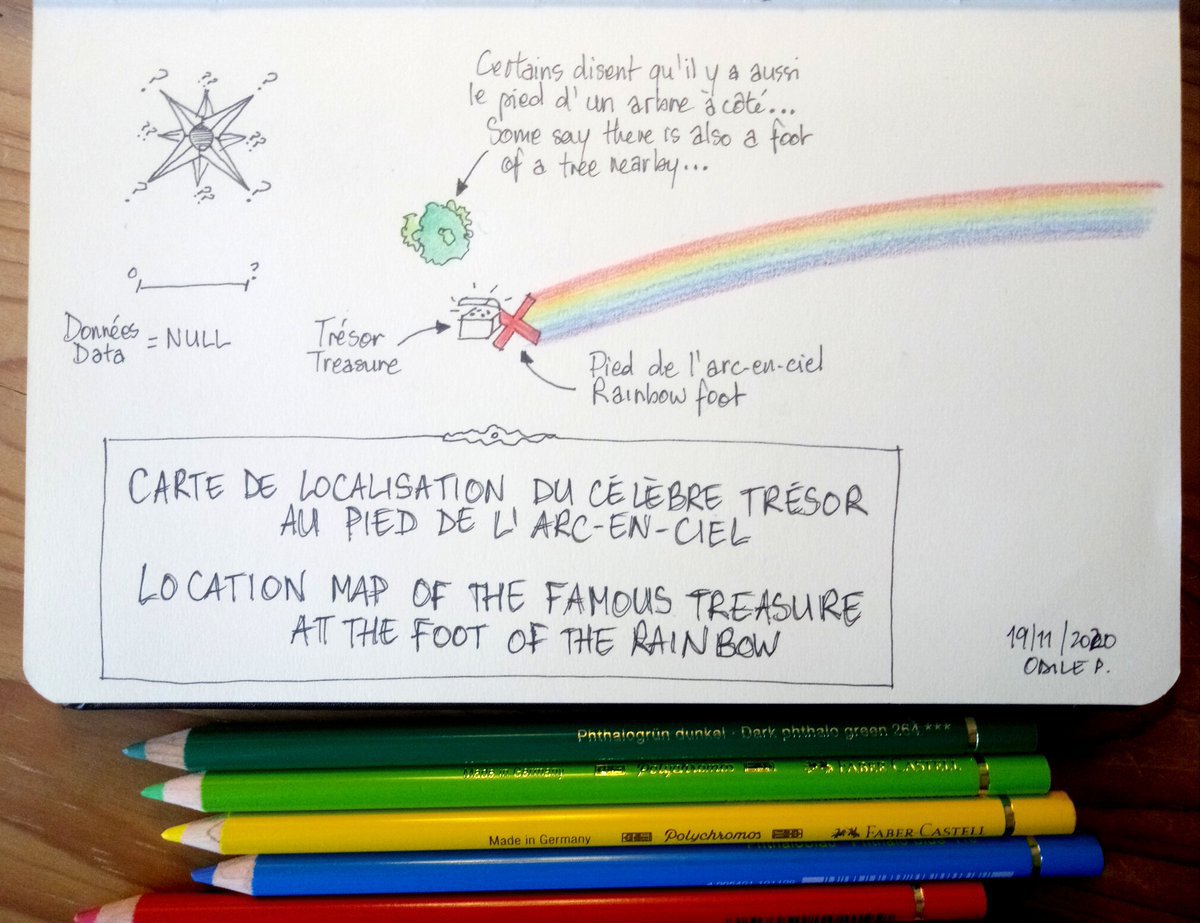 ? ?? ?
?? ??
? ?? ?
Certains disent qu'il y a aussi
le pied d'un arbre à côté...
Some say there is also a foot
of a tree nearby...
0 ?
Données
Data
= NULL
Trésor
Treasure
Pied de l'arc-en-ciel
Rainbow foot
CARTE DE LOCALISATION DU CÉLÈBRE TRÉSOR
AU PIED DE L'ARC-EN-CIEL
LOCATION MAP OF THE FAMOUS TREASURE
AT THE FOOT OF THE RAINBOW
19/11/2020
ODILE P.
Phthalogrün dunkel · Dark phthalo green 264 ***
Made in Germany Polychromos FABER CASTELL
Made in Germany Polychromos FABER-CASTELL